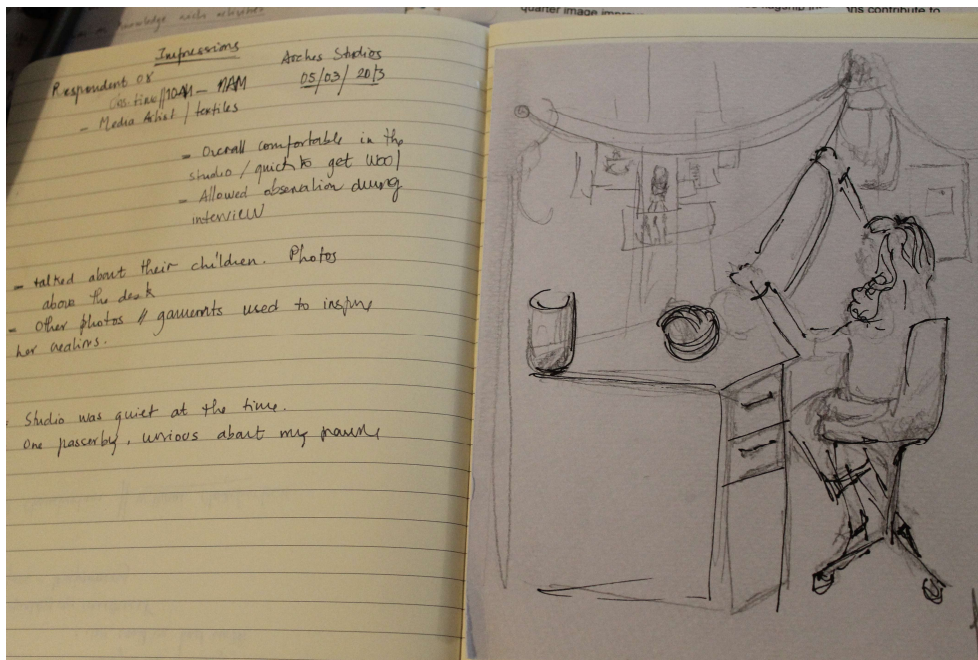 quarter image
contribute to
Impressions
Respondent 08
Arches Studios
05/03/2013
Obs. time // 10AM – 11AM
- Media Artist / textiles
- Overall comfortable in the
studio / quick to get wool
- Allowed observation during
interview
- talked about their children. Photos
above the desk
- Other photos // garments used to inspire
her creations.
Studio was quiet at the time.
One passerby, curious about my